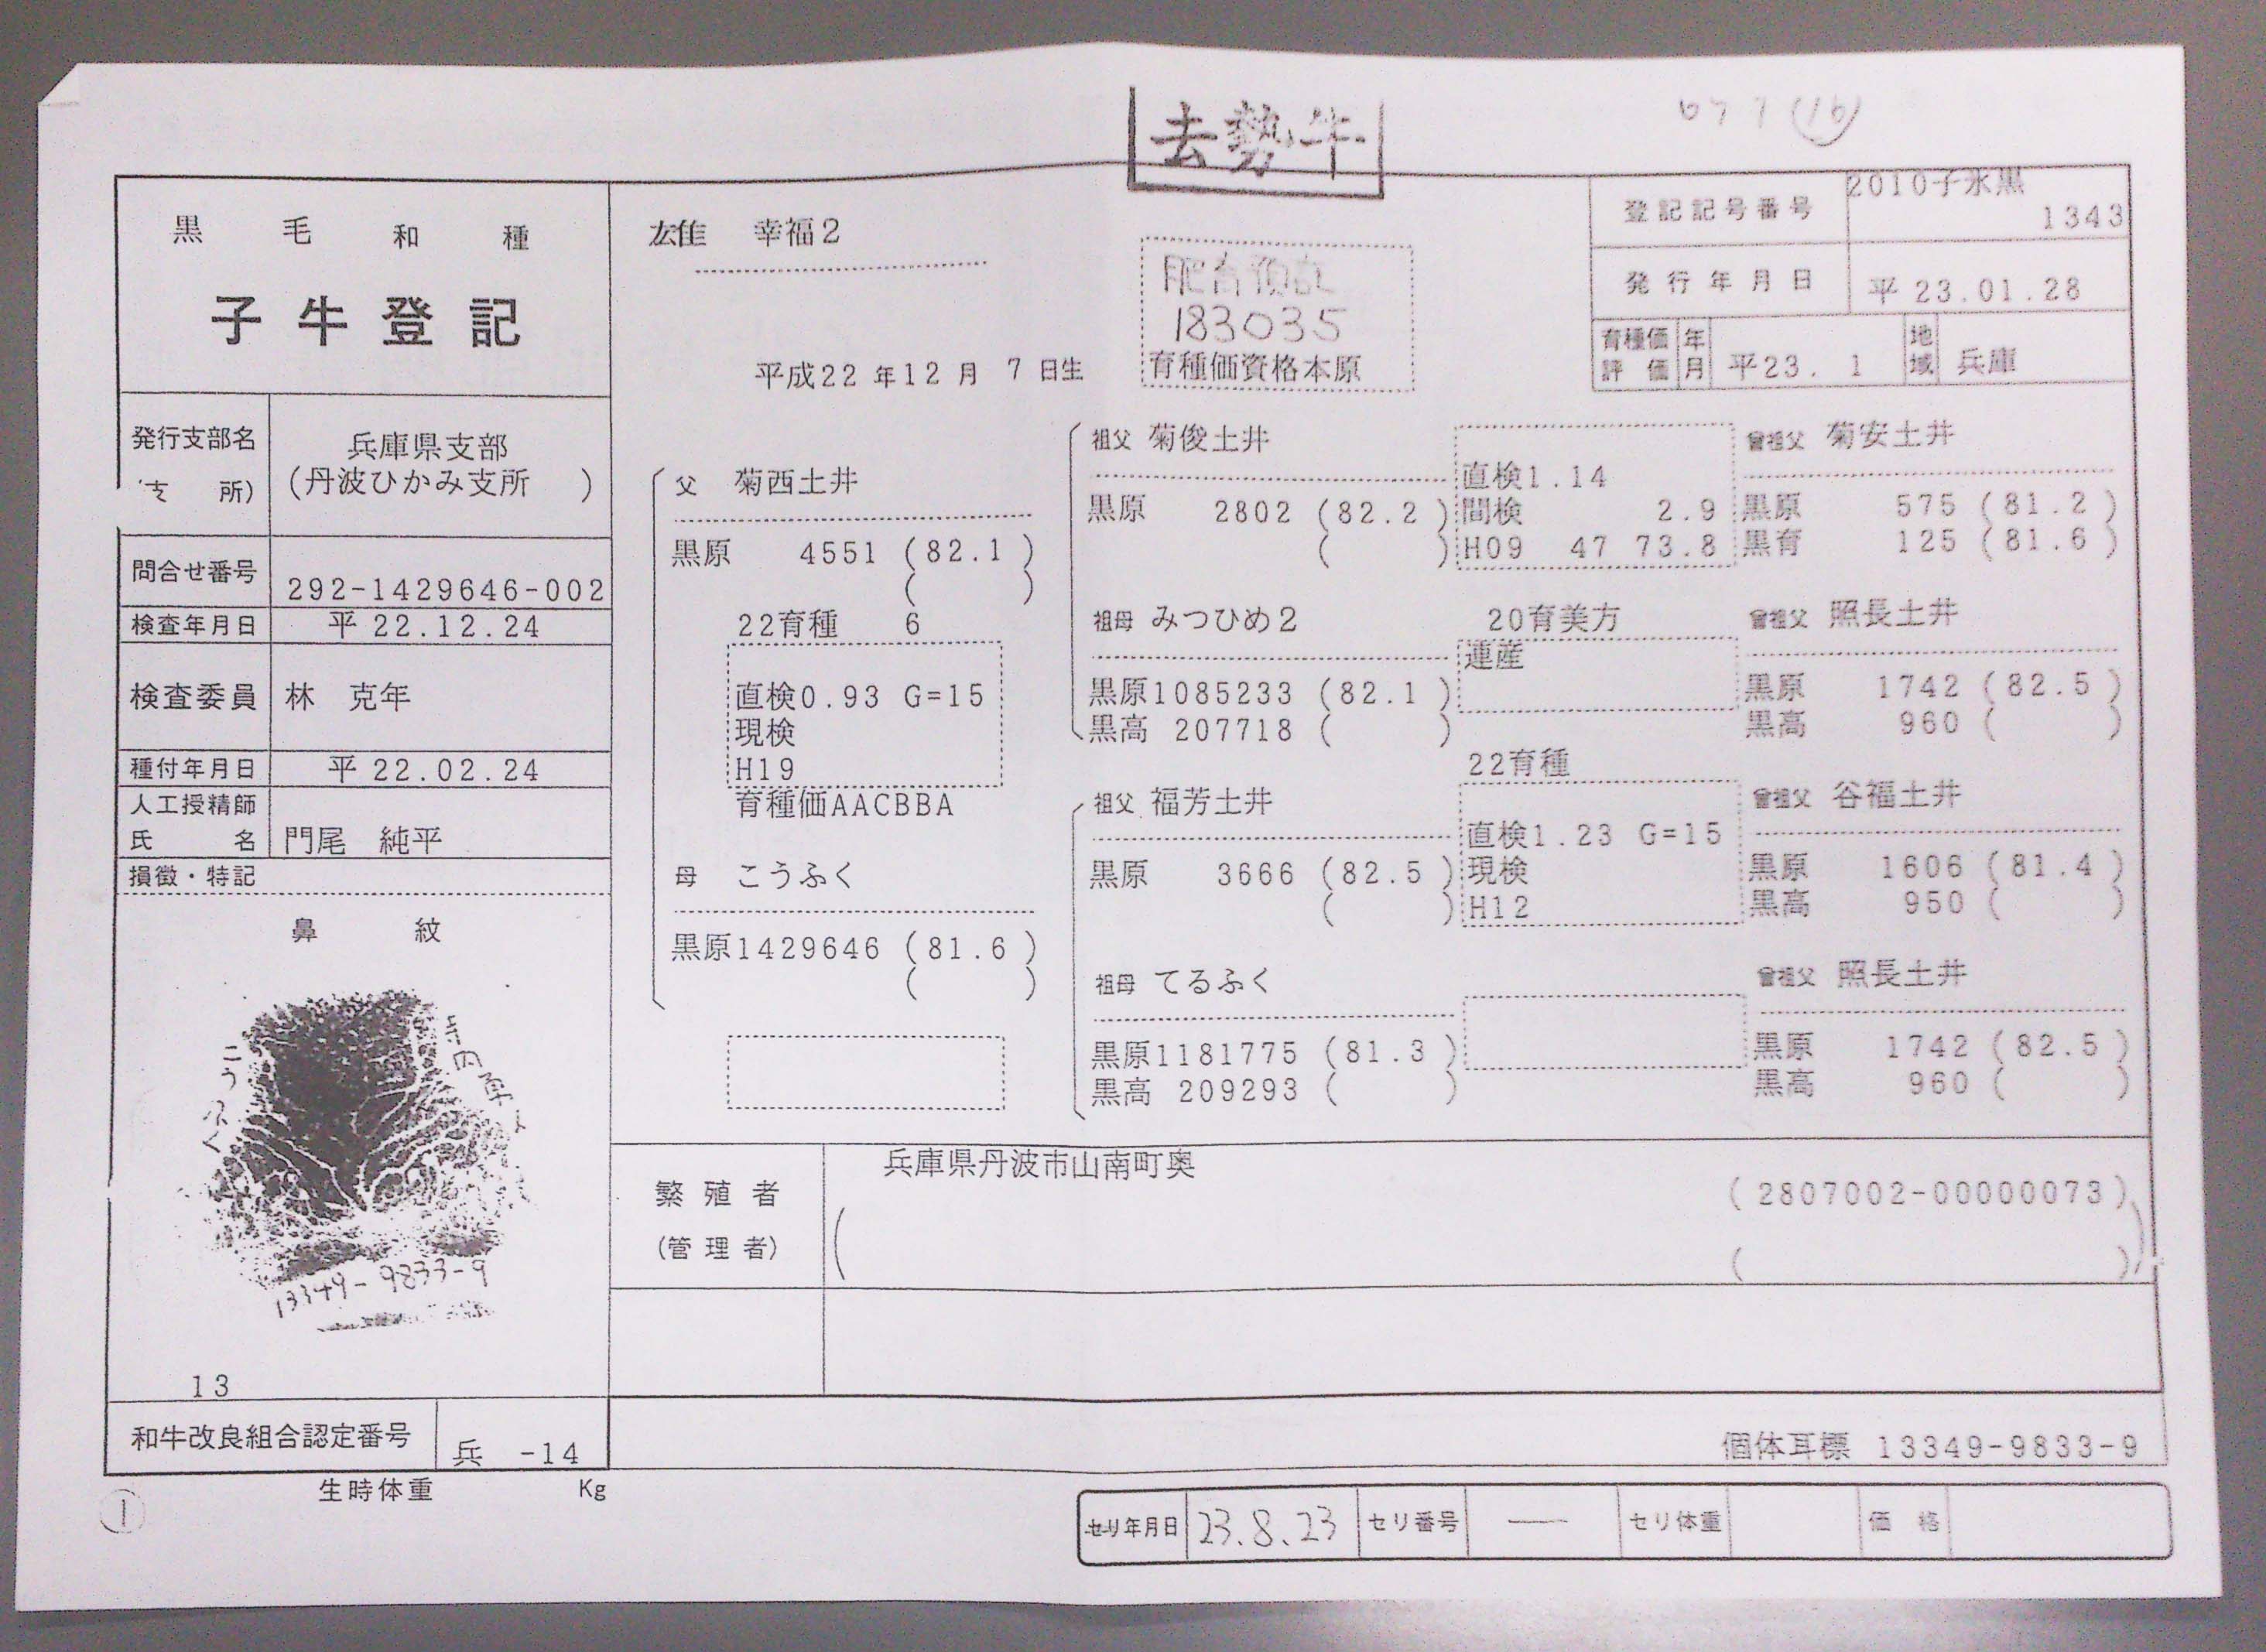 去勢牛
(16)
黒毛和種
子牛登記
発行支部名
支所)
兵庫県支部
(丹波ひかみ支所 )
問合せ番号 292-1429646-002
検査年月日 平 22.12.24
検査委員 林 克年
種付年月日 平 22.02.24
人工授精師
氏名 門尾 純平
損徴・特記
鼻紋
こうふく
13349-9833-9
13
和牛改良組合認定番号 兵 -14
生時体重 Kg
①
雄 幸福2
平成22年12月 7日生
肥育
183035
育種価資格本原
登記記号番号 2010子氷黒
1343
発行年月日 平 23.01.28
育種価評価 年月 平23. 1 地域 兵庫
父 菊西土井
黒原 4551 (82.1 )
( )
22育種 6
直検0.93 G=15
現検
H19
育種価AACBBA
母 こうふく
黒原1429646 (81.6 )
( )
祖父 菊俊土井
黒原 2802 (82.2 )
( )
直検1.14
間検 2.9
H09 47 73.8
曾祖父 菊安土井
黒原 575 (81.2 )
黒育 125 (81.6 )
祖母 みつひめ2
黒原1085233 (82.1 )
黒高 207718 ( )
20育美方
連産
曾祖父 照長土井
黒原 1742 (82.5 )
黒高 960 ( )
祖父 福芳土井
黒原 3666 (82.5 )
( )
22育種
直検1.23 G=15
現検
H12
曾祖父 谷福土井
黒原 1606 (81.4 )
黒高 950 ( )
祖母 てるふく
黒原1181775 (81.3 )
黒高 209293 ( )
曾祖父 照長土井
黒原 1742 (82.5 )
黒高 960 ( )
繁殖者
(管理者)
兵庫県丹波市山南町奥
(2807002-00000073)
( )
個体耳標 13349-9833-9
セリ年月日 23.8.23 セリ番号 — セリ体重 価格